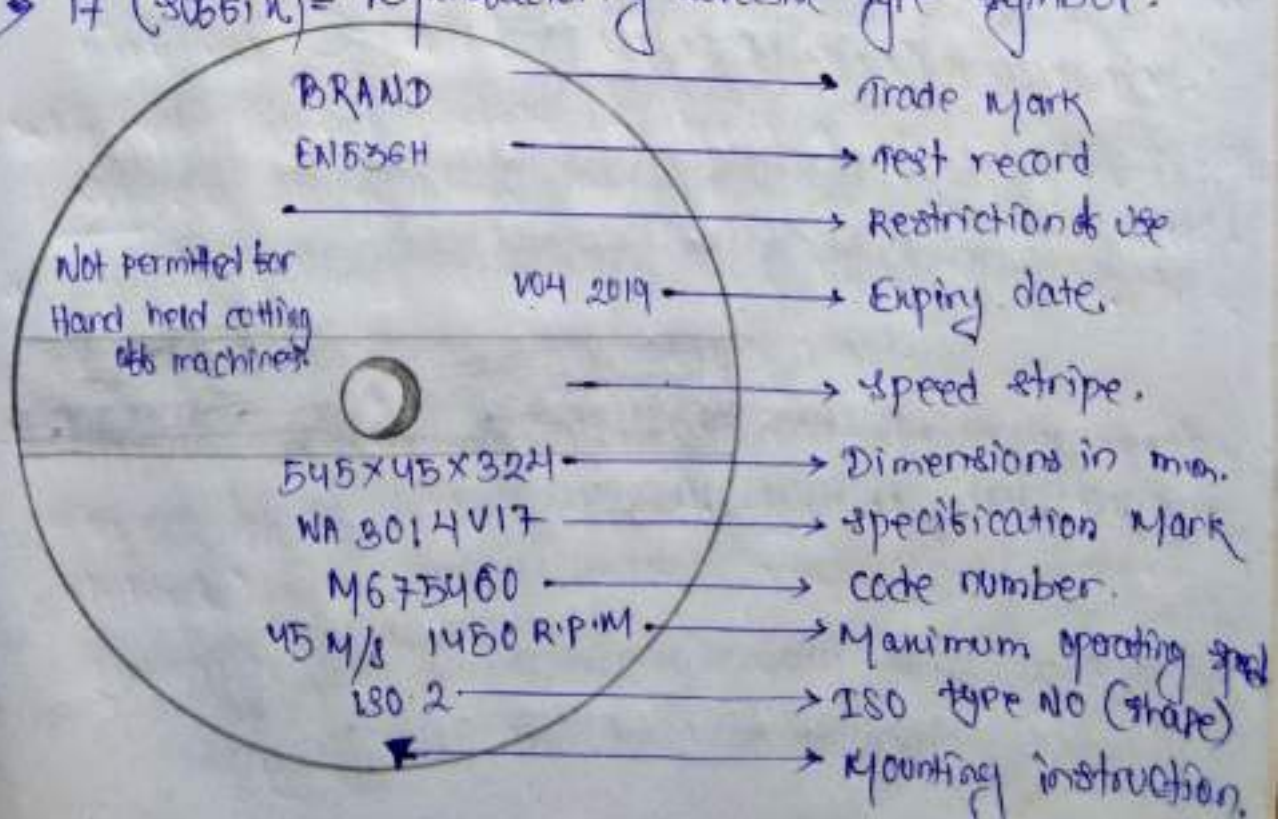 17 (suffix) = manufacturing wheel symbol.
BRAND → Trade Mark
EN536H → Test record
→ Restriction of use
Not permitted for
Hand held cutting
off machines.
V04 2019 → Expiry date.
→ Speed stripe.
545×45×324 → Dimensions in mm.
WA 3014V17 → Specification Mark
M675460 → Code number.
45 M/S 1450 R.P.M → Maximum operating speed
ISO 2 → ISO type NO (shape)
→ Mounting instruction.